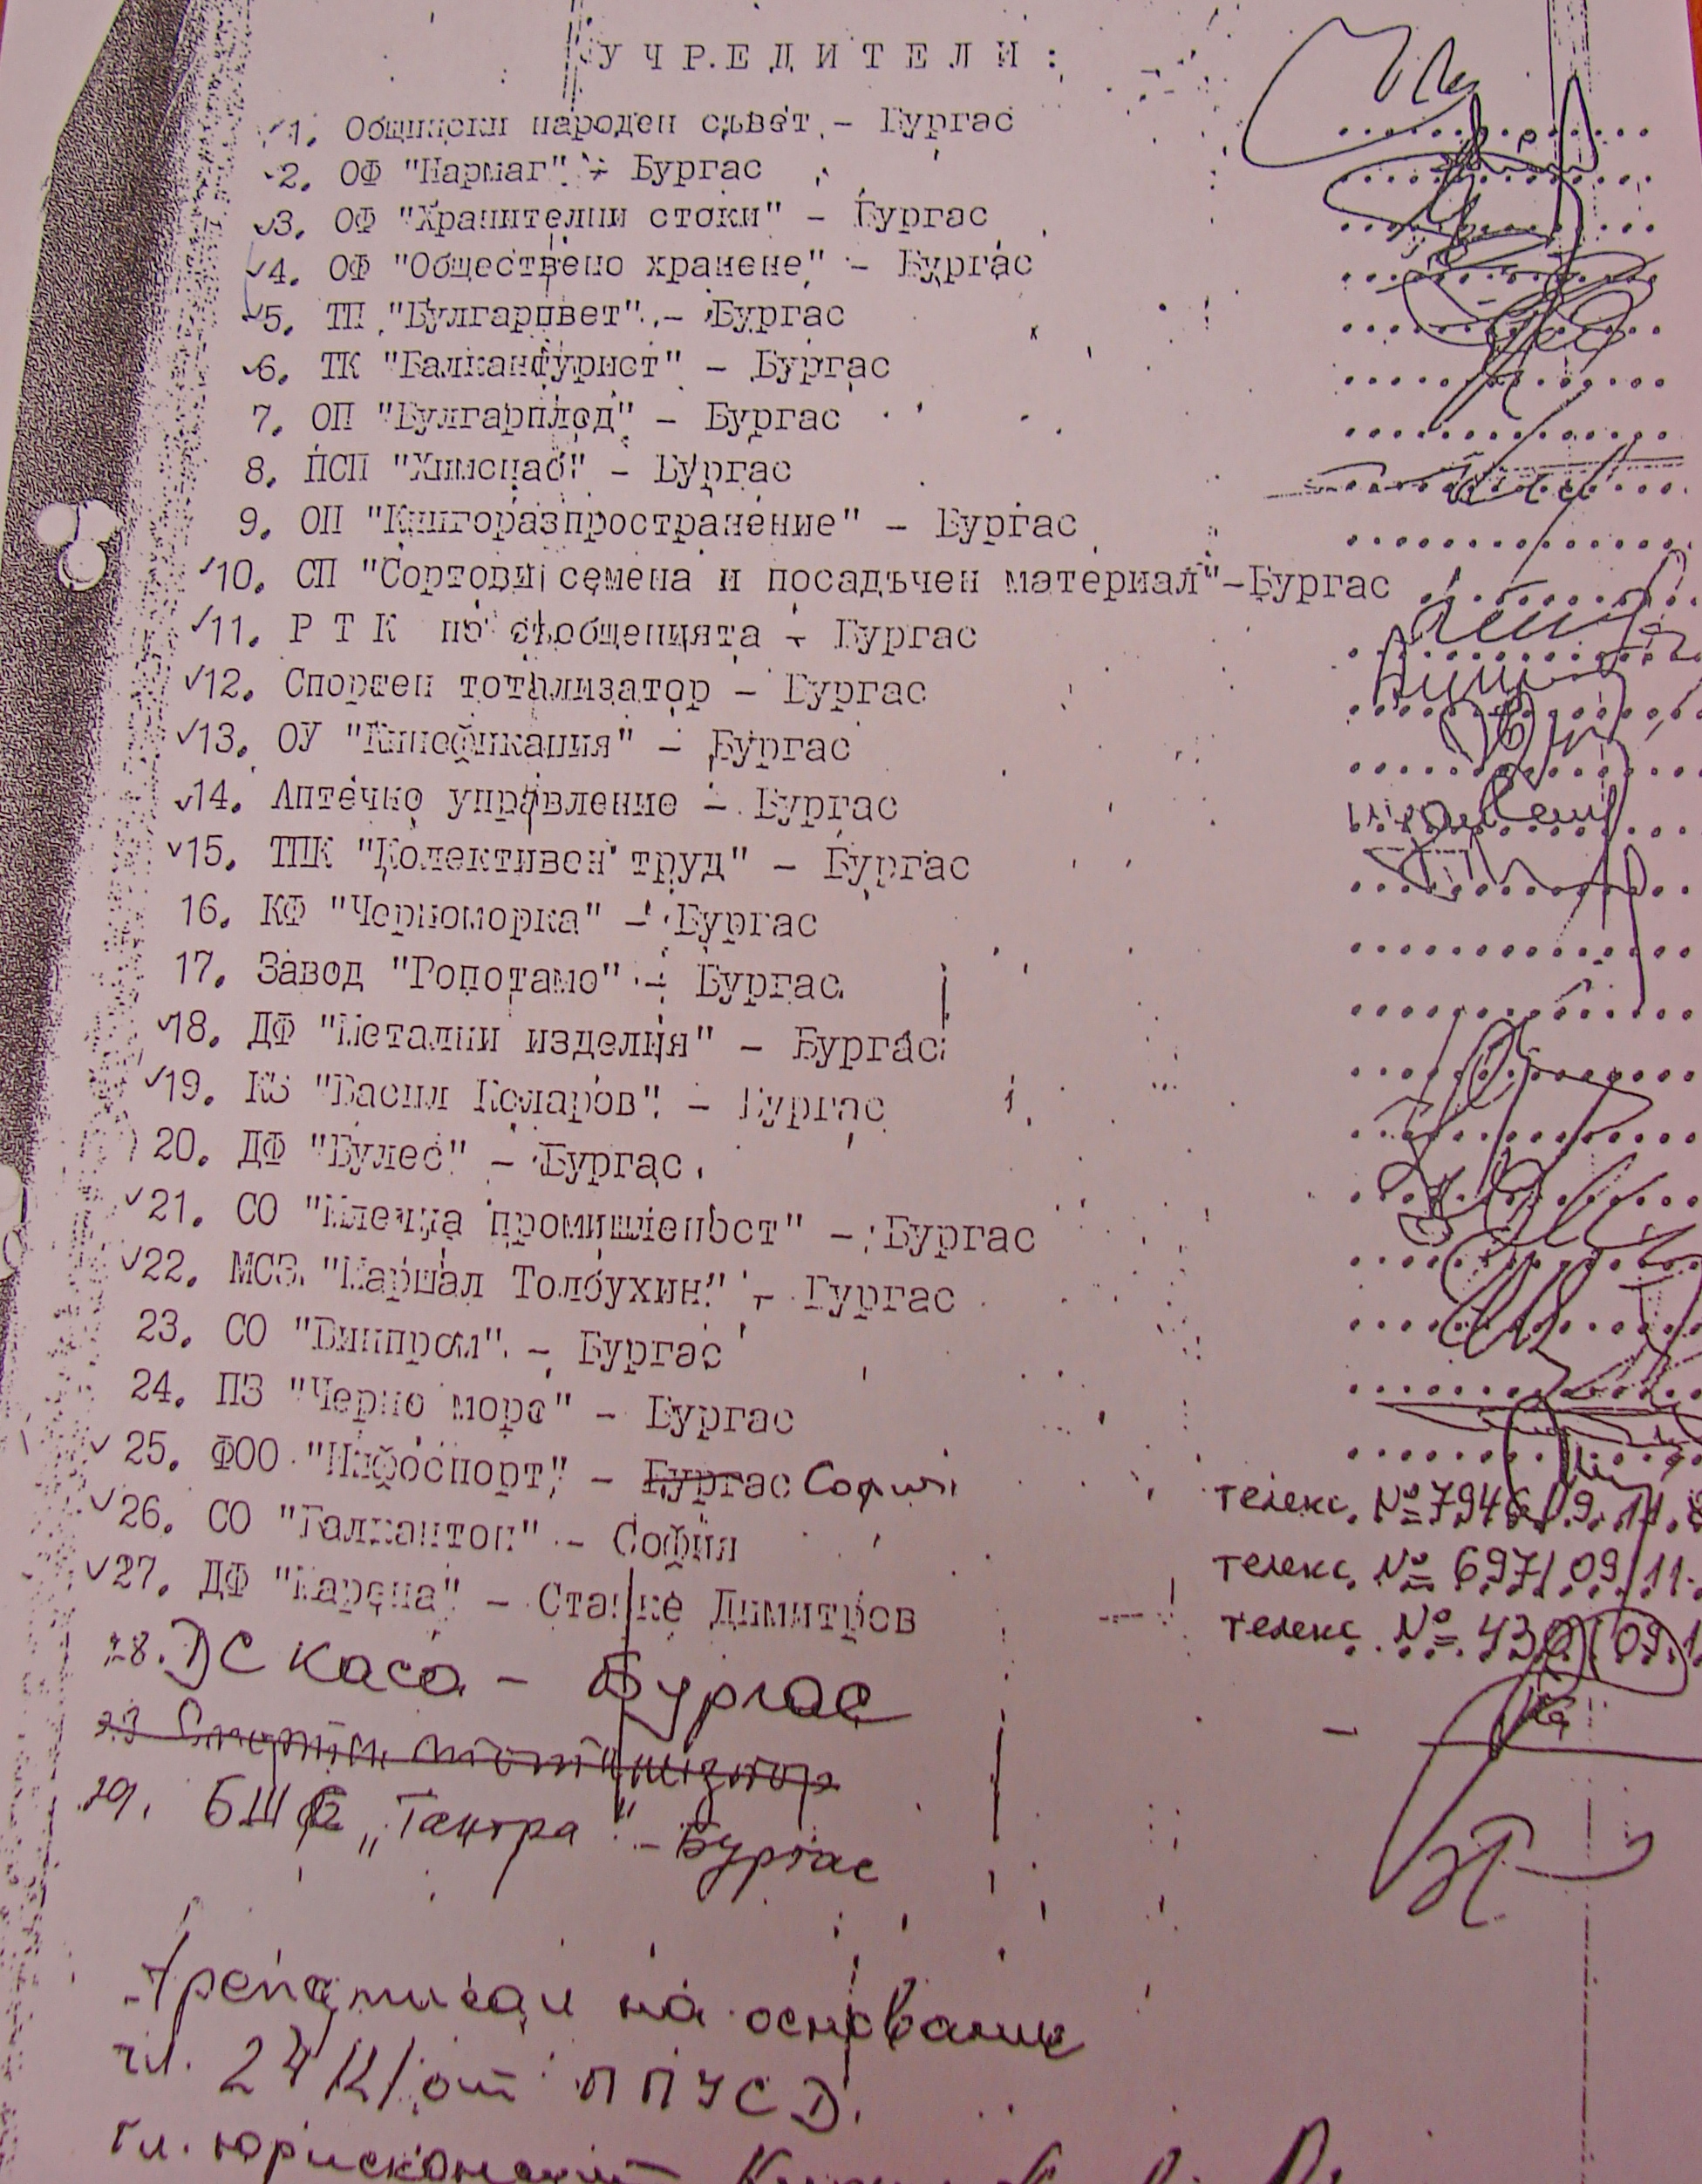 УЧРЕДИТЕЛИ:
1. Общински народен съвет - Бургас
2. ОФ "Нармаг" - Бургас
3. ОФ "Хранителни стоки" - Бургас
4. ОФ "Обществено хранене" - Бургас
5. ТП "Булгарцвет" - Бургас
6. ТК "Балкантурист" - Бургас
7. ОП "Булгарплод" - Бургас
8. ПСП "Химснаб" - Бургас
9. ОП "Книгоразпространение" - Бургас
10. СП "Сортови семена и посадъчен материал" - Бургас
11. Р Т К по съобщенията - Бургас
12. Спортен тотализатор - Бургас
13. ОУ "Кинефикация" - Бургас
14. Аптечно управление - Бургас
15. ТПК "Колективен труд" - Бургас
16. КФ "Черноморка" - Бургас
17. Завод "Ропотамо" - Бургас
18. ДФ "Метални изделия" - Бургас
19. КЗ "Васил Коларов" - Бургас
20. ДФ "Булес" - Бургас
21. СО "Млечна промишленост" - Бургас
22. МСЗ "Маршал Толбухин" - Бургас
23. СО "Винпром" - Бургас
24. ПЗ "Черно море" - Бургас
25. ФОО "Инфоспорт" - Бургас София
26. СО "Балкантон" - София телекс №7946/9.11.
27. ДФ "Марена" - Станке Димитров телекс № 697/09/11.
телекс №
28. ДС каса - Бургас
Спортен тотализатор
29. "Тантра" - Бургас
на основание
чл. от ППУСД.
Гл. юрисконсулт